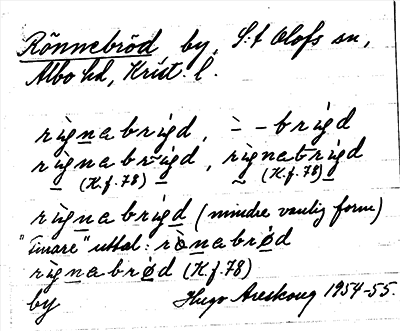 Rönnebröd by, S:t Olofs sn,
Albo hd, Krist. l.
rignabrigd, ̀ - -brigd
rignabrigd, rignabrigd
(K.f.78) (K.f.78)
rignabrigd (mindre vanlig form)
"finare" uttal: rònabrød
rignabrød (K.f.78)
by Hugo Areskoug 1954-55.